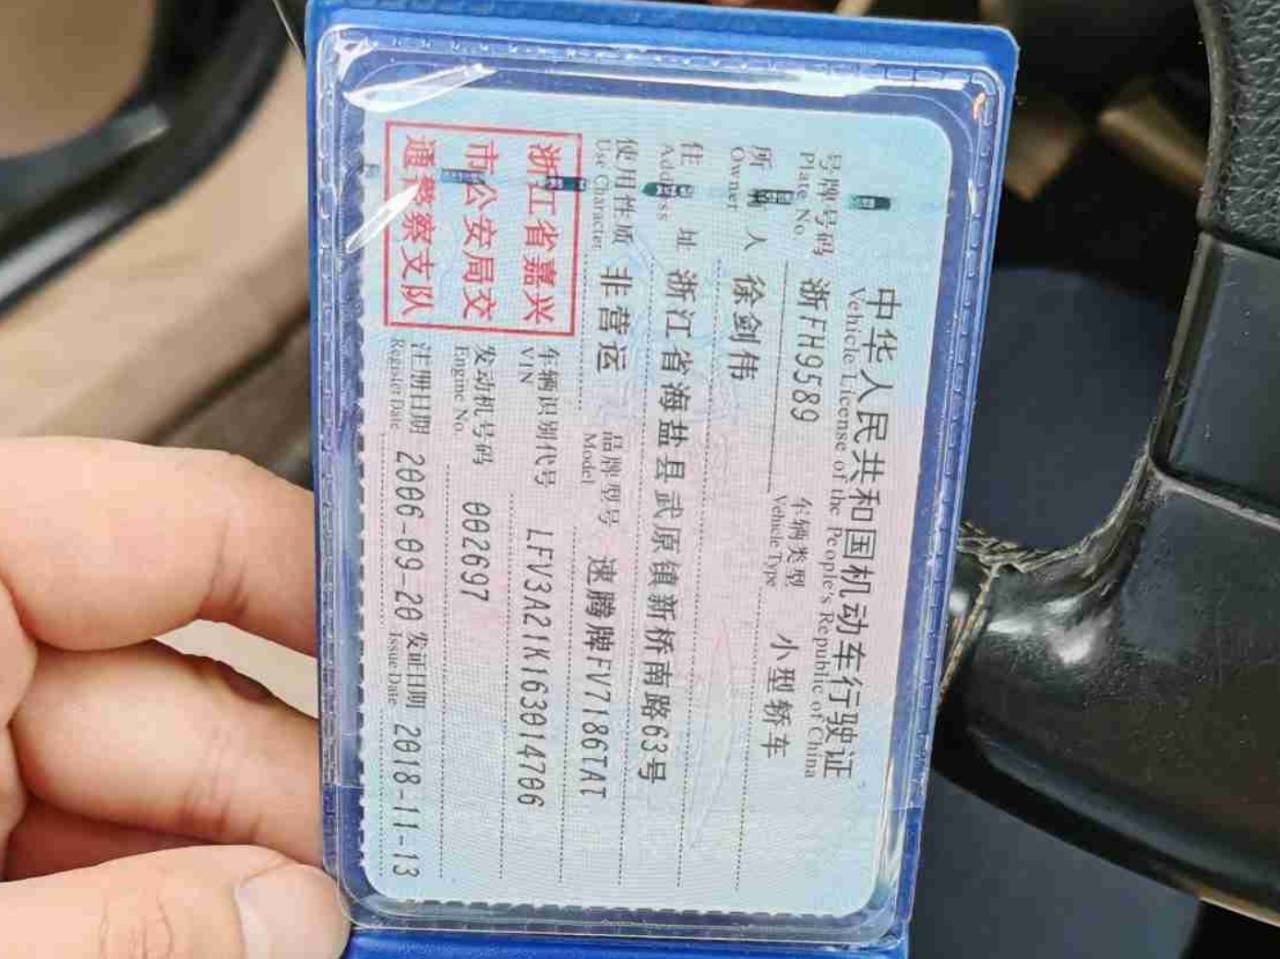 中华人民共和国机动车行驶证
Vehicle License of the People's Republic of China
号牌号码 浙FH9589 车辆类型 小型轿车
Plate No. Vehicle Type
所有人 徐剑伟
Owner
住址 浙江省海盐县武原镇新桥南路63号
Address
使用性质 非营运 品牌型号 速腾牌FV7186TAT
Use Character Model
浙江省嘉兴
市公安局交
通警察支队
车辆识别代号 LFV3A21K163014706
VIN
发动机号码 002697
Engine No.
注册日期 2006-09-20 发证日期 2018-11-13
Register Date Issue Date